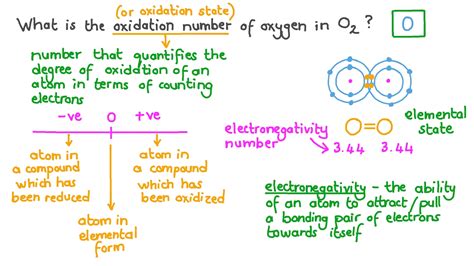 (or oxidation state)
What is the oxidation number of oxygen in O₂ ? 0
number that quantifies the
degree of oxidation of an
atom in terms of counting
electrons
-ve 0 +ve
atom in
a compound
which has
been reduced
atom in
a compound
which has
been oxidized
atom in
elemental
form
elemental
state
O=O
electronegativity
number
3.44 3.44
electronegativity - the ability
of an atom to attract/pull
a bonding pair of electrons
towards itself